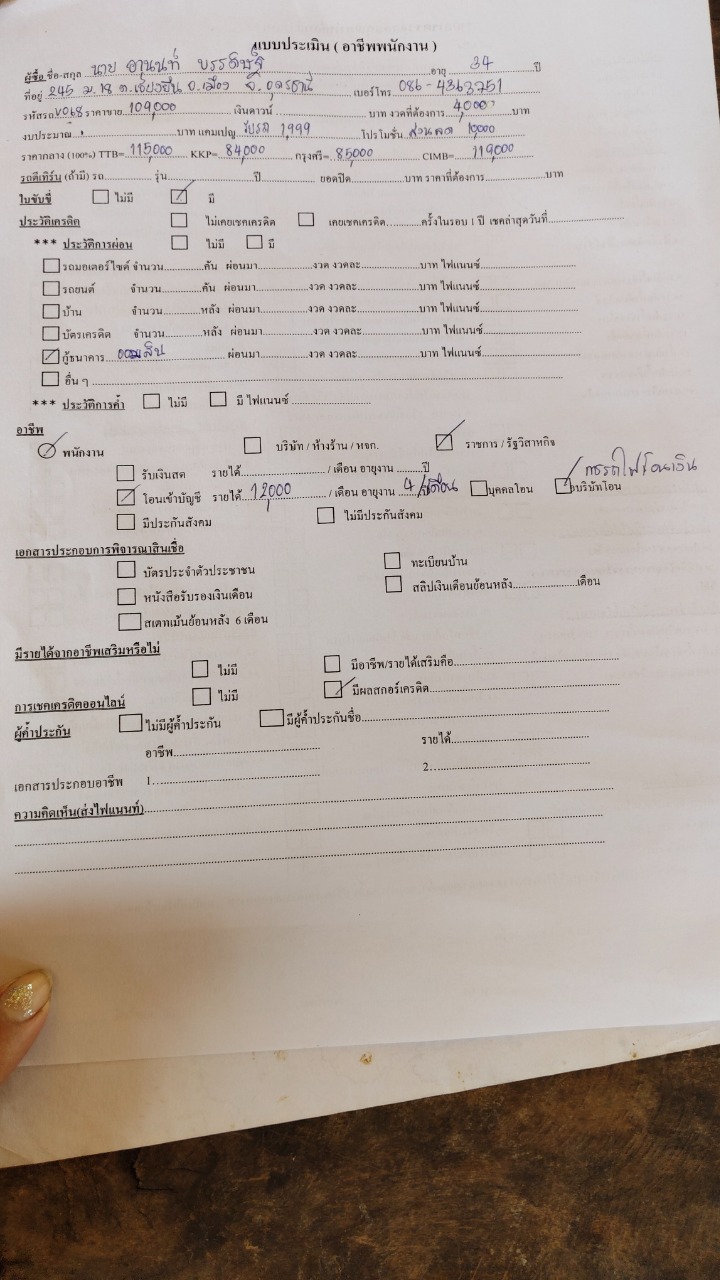 แบบประเมิน ( อาชีพพนักงาน )
ผู้ซื้อ ชื่อ-สกุล นาย อานนท์ บรรดิษฐ์ อายุ 34 ปี
ที่อยู่ 245 ม.18 ต.เชียงยืน อ.เมือง จ.อุดรธานี เบอร์โทร 086-4363751
รหัสรถ V068 ราคาขาย 109,000 เงินดาวน์ บาท งวดที่ต้องการ 4,000 บาท
งบประมาณ บาท แคมเปญ รับรถ 1,999 โปรโมชั่น ส่วนลด 10,000
ราคากลาง (100%) TTB= 115,000 KKP= 84,000 กรุงศรี= 85,000 CIMB= 119,000
รถตีเทิร์น (ถ้ามี) รถ รุ่น ปี ยอดปิด บาท ราคาที่ต้องการ บาท
ใบขับขี่ ไม่มี มี
ประวัติเครดิต ไม่เคยเชคเครดิต เคยเชคเครดิต ครั้งในรอบ 1 ปี เชคล่าสุดวันที่
*** ประวัติการผ่อน ไม่มี มี
รถมอเตอร์ไซค์ จำนวน คัน ผ่อนมา งวด งวดละ บาท ไฟแนนซ์
รถยนต์ จำนวน คัน ผ่อนมา งวด งวดละ บาท ไฟแนนซ์
บ้าน จำนวน หลัง ผ่อนมา งวด งวดละ บาท ไฟแนนซ์
บัตรเครดิต จำนวน หลัง ผ่อนมา งวด งวดละ บาท ไฟแนนซ์
กู้ธนาคาร ออมสิน ผ่อนมา งวด งวดละ บาท ไฟแนนซ์
อื่น ๆ
*** ประวัติการค้ำ ไม่มี มี ไฟแนนซ์
อาชีพ
พนักงาน บริษัท / ห้างร้าน / หจก. ราชการ / รัฐวิสาหกิจ
รับเงินสด รายได้ / เดือน อายุงาน ปี
การรถไฟโอนเงิน
โอนเข้าบัญชี รายได้ 12,000 / เดือน อายุงาน 4 เดือน บุคคลโอน บริษัทโอน
มีประกันสังคม ไม่มีประกันสังคม
เอกสารประกอบการพิจารณาสินเชื่อ
บัตรประจำตัวประชาชน ทะเบียนบ้าน
หนังสือรับรองเงินเดือน สลิปเงินเดือนย้อนหลัง เดือน
สเตทเม้นย้อนหลัง 6 เดือน
มีรายได้จากอาชีพเสริมหรือไม่
ไม่มี มีอาชีพ/รายได้เสริมคือ
การเชคเครดิตออนไลน์ ไม่มี มีผลสกอร์เครดิต
ผู้ค้ำประกัน ไม่มีผู้ค้ำประกัน มีผู้ค้ำประกันชื่อ
อาชีพ รายได้
เอกสารประกอบอาชีพ 1 2
ความคิดเห็น(ส่งไฟแนนท์)